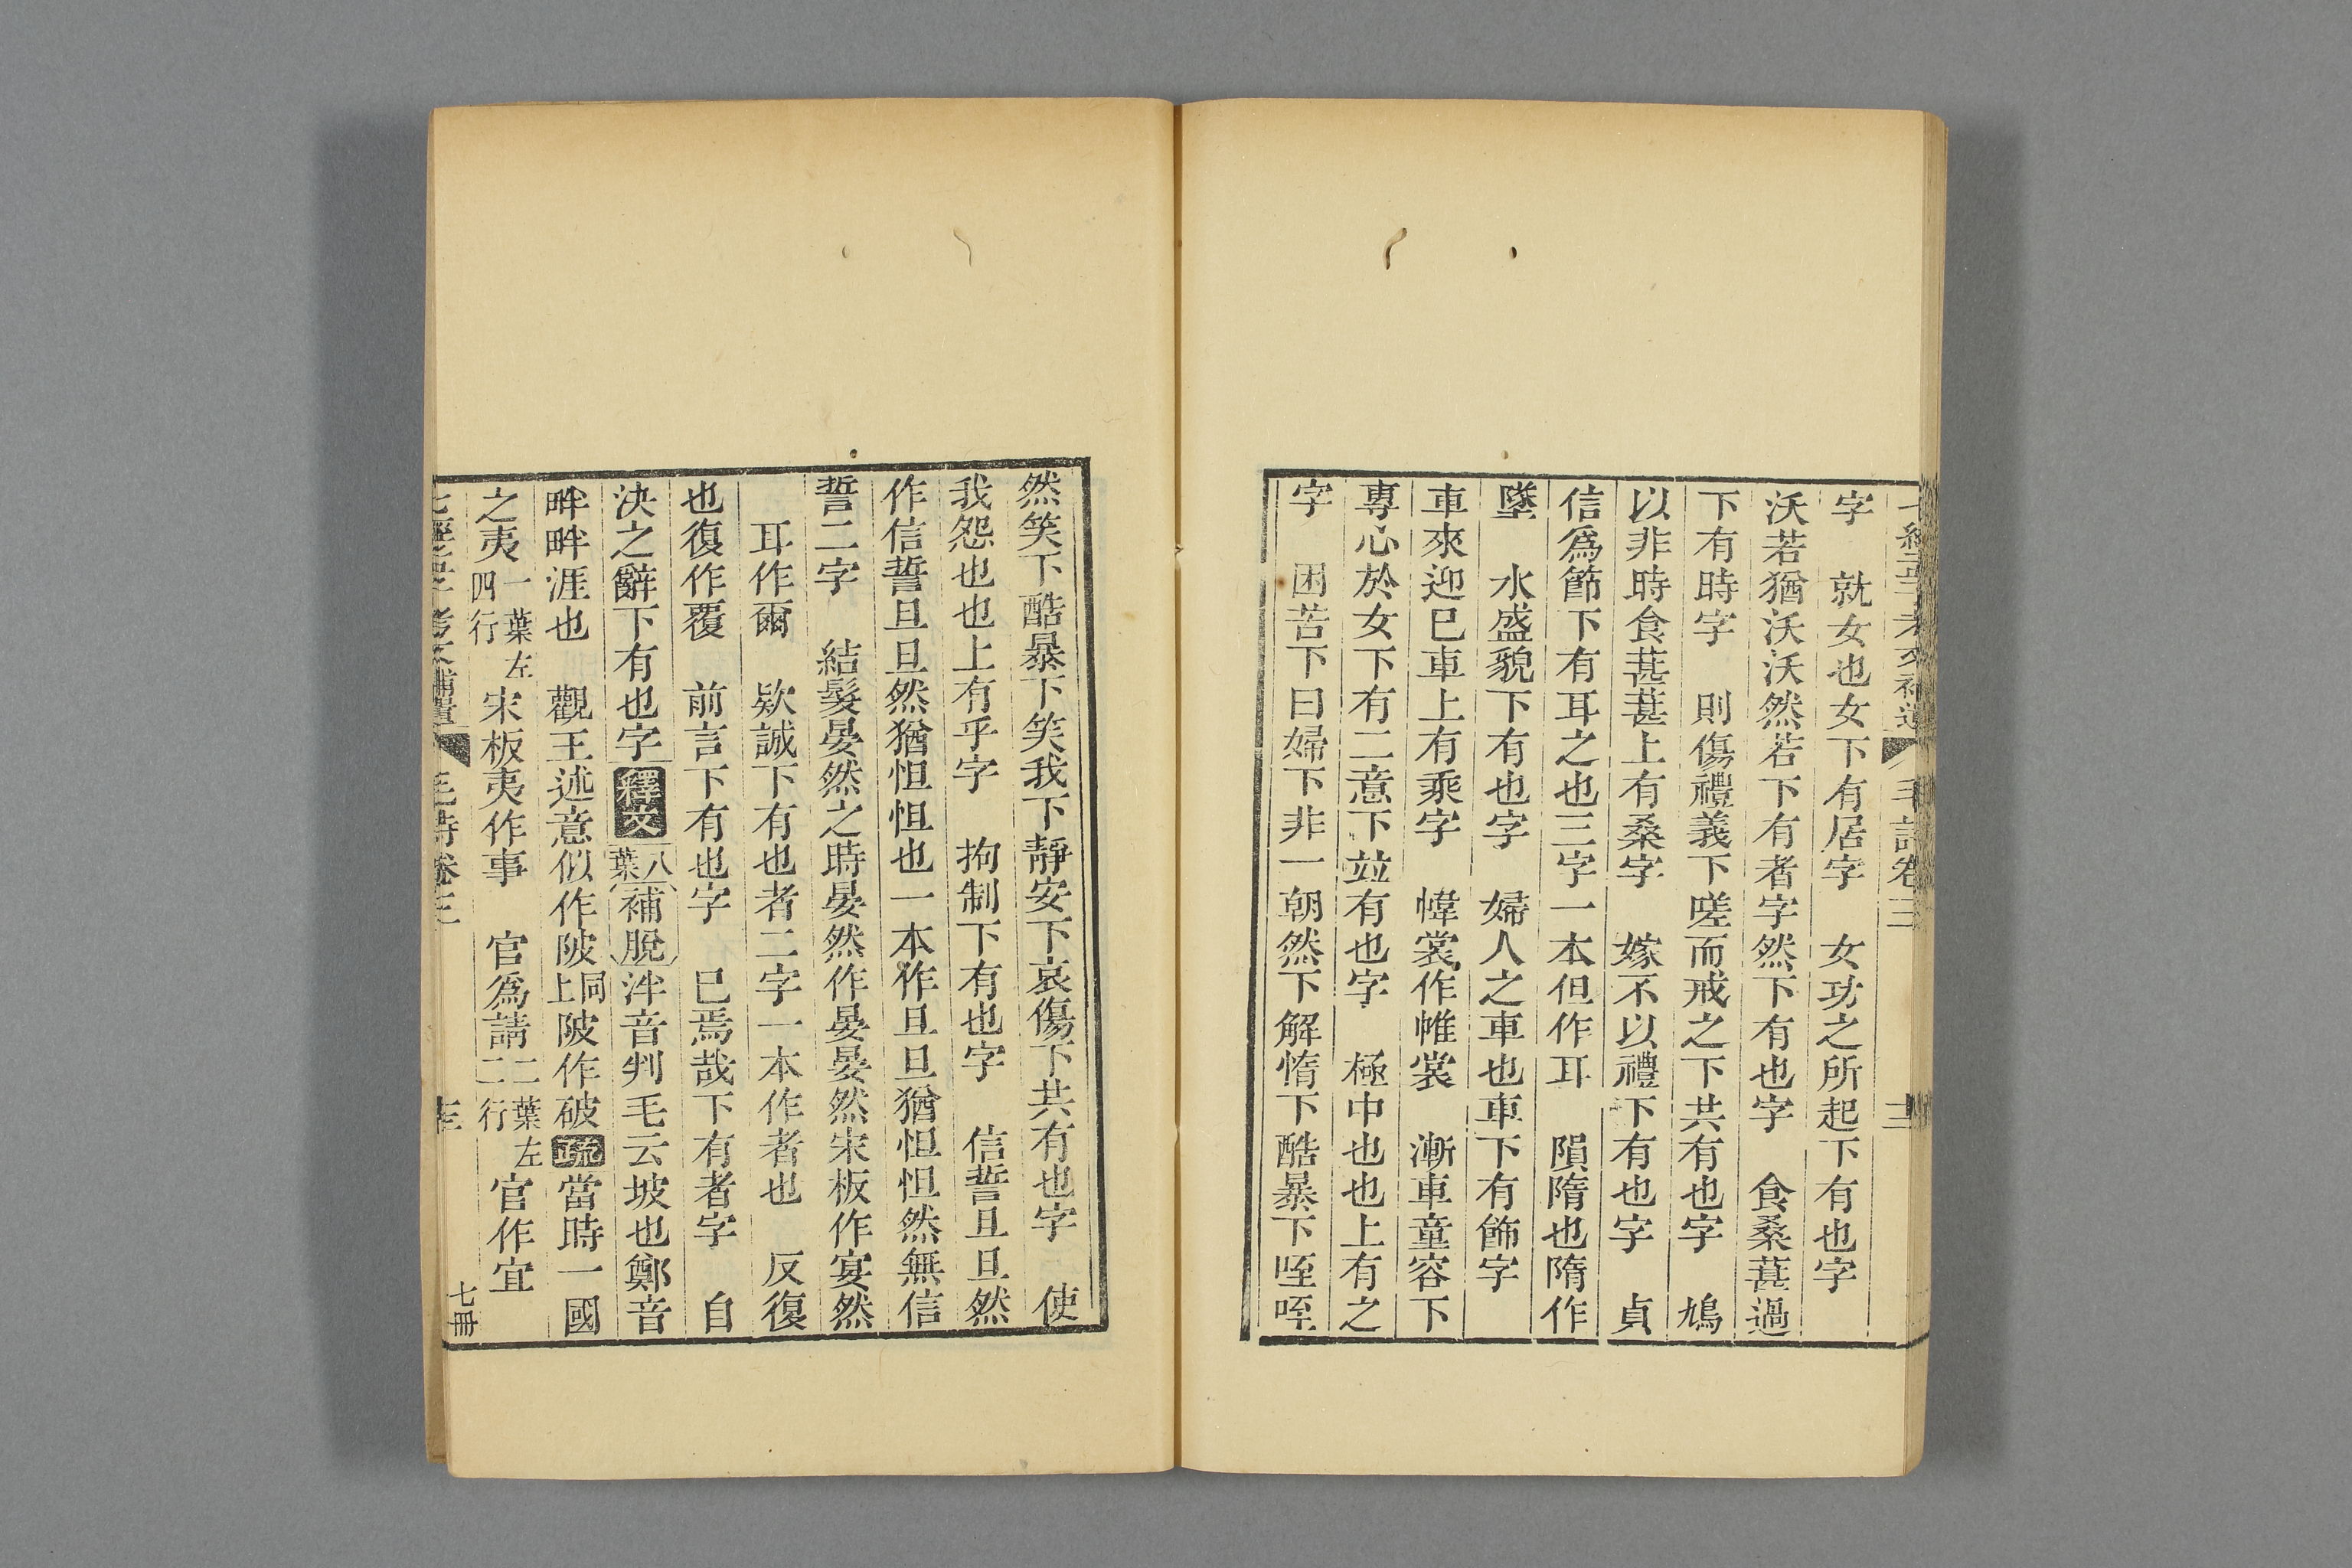 七經孟子考文補遺 毛詩卷三
字 就女也女下有居字 女功之所起下有也字
沃若猶沃沃然若下有者字然下有也字 食桑葚過
下有時字 則傷禮義下嗟而戒之下共有也字 鳩
以非時食葚葚上有桑字 嫁不以禮下有也字 貞
信爲節下有耳之也三字一本但作耳 隕隋也隋作
墬 水盛貌下有也字 婦人之車也車下有飾字
車來迎巳車上有乘字 幃裳作帷裳 漸車童容下
專心於女下有二意下竝有也字 極中也也上有之
字 困苦下曰婦下非一朝然下解惰下酷暴下咥咥
然笑下酷暴下笑我下靜安下哀傷下共有也字 使
我怨也也上有乎字 拘制下有也字 信誓旦旦然
作信誓旦旦然猶怛怛也一本作旦旦猶怛怛然無信
誓二字 結髮晏然之時晏然作晏晏然宋板作宴然
耳作爾 欵誠下有也者二字一本作者也 反復
也復作覆 前言下有也字 巳焉哉下有者字 自
決之辭下有也字 釋文 八葉 補脫 泮音判毛云坡也鄭音
畔畔涯也 觀王述意似作陂 同上 陂作破 疏 當時一國
之夷 一葉左四行 宋板夷作事 官爲請 二葉左二行 官作宜
七經孟子考文補遺 毛詩卷三 七冊